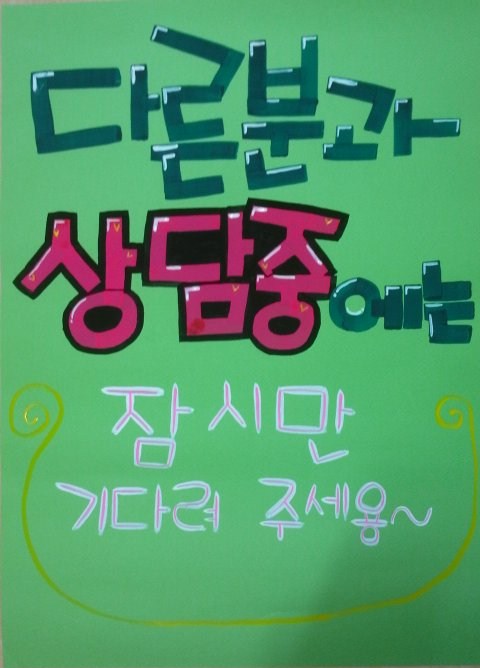 다른분과
상담중에는
잠시만
기다려 주세용~